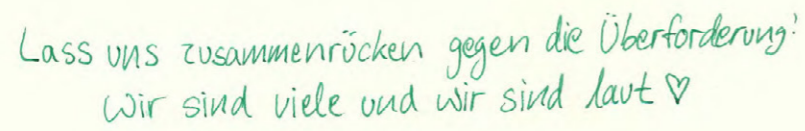 Lass uns zusammenrücken gegen die Überforderung!
Wir sind viele und wir sind laut ♡